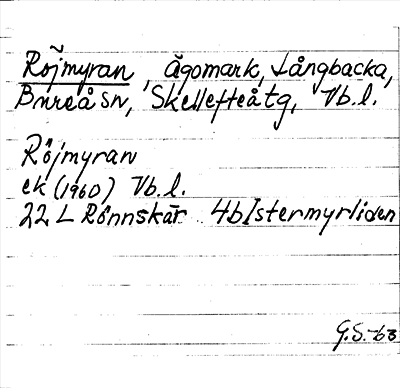 Röjmyran, Ägomark, Långbacka,
Bureå sn, Skellefteå tg, Vb.l.
Röjmyran
ek (1960) Vb.l.
22 L Rönnskär 4b Istermyrliden
G.S.-63